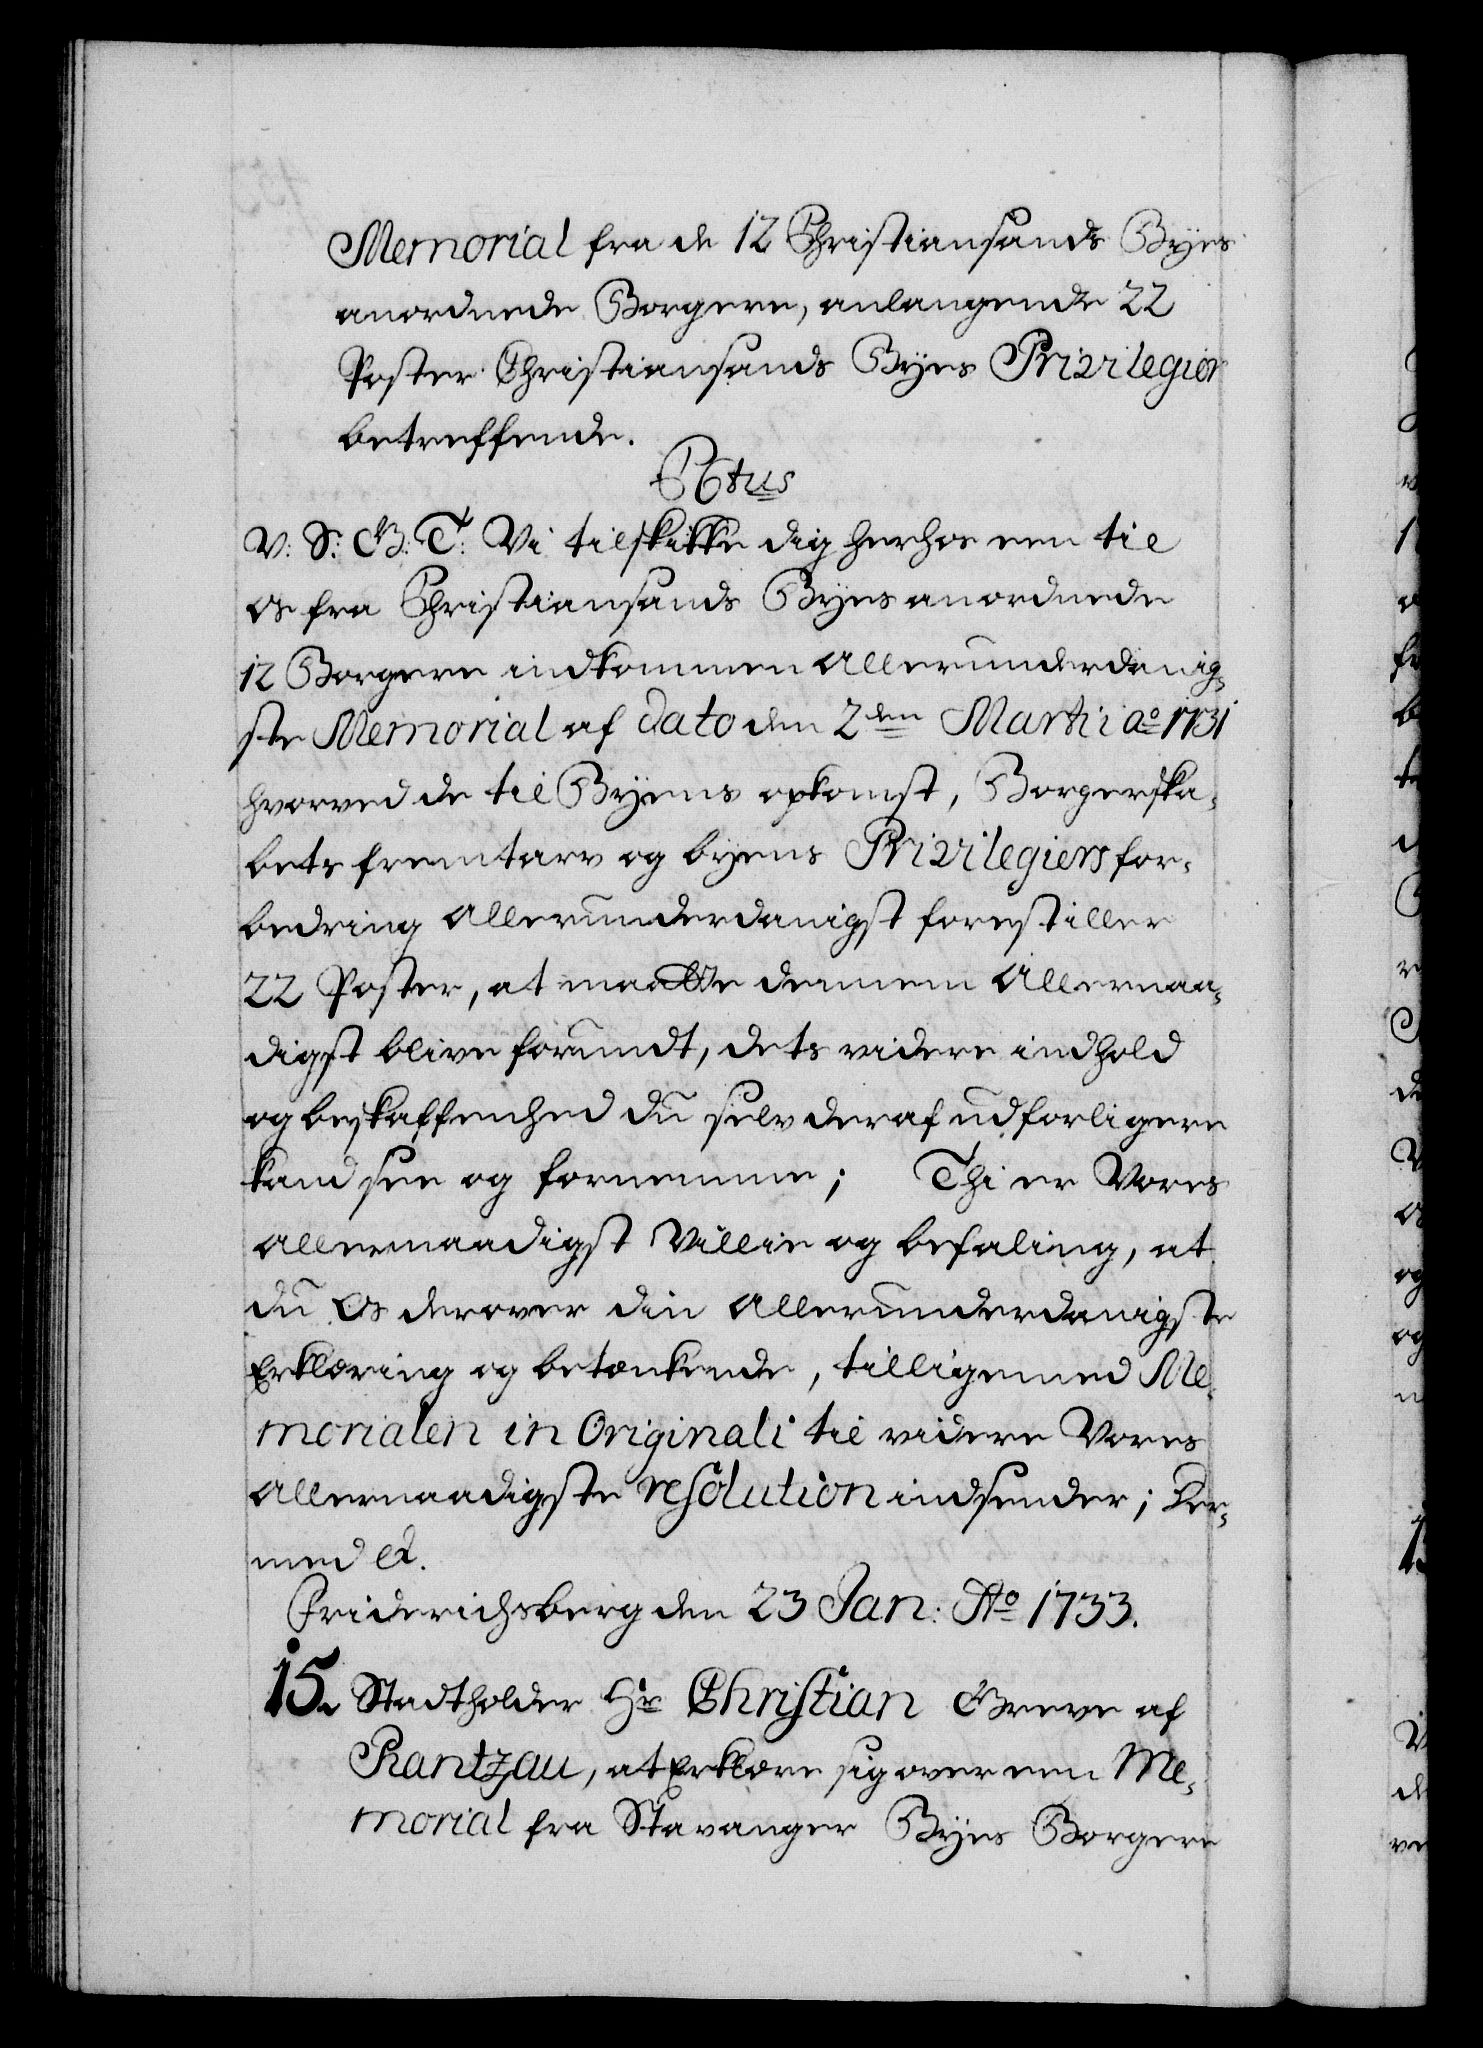 Memorial fra de 12 Christiansands Byes
anordnede Borgere, anlangende 22
Poster Christiansands Byes Privilegier
betreffende.
C6tus
V: S: G: T: Vi tilskikke dig herhos een til
os fra Christiansands Byes anordnede
12 Borgere indkommen allerunderdanig-
ste Memorial af dato den 2den Martii ao 1731
hvorved de til Byens opkomst, Borgerska-
bets fremtarv og byens Privilegiers for-
bedring allerunderdanigst forestiller
22 Poster, at maatte dennem allernaa-
digst blive forundt, dets videre indhold
og beskaffenhed du selv deraf udforligere
kand see og fornemme; Thi er Vores
allernaadigst Villie og befaling, at
du Os derover din allerunderdanigste
Erklæring og betænkende, tilligemed Me-
morialen in Originali til videre Vores
allernaadigste resolution indsender; Der-
med etc.
Friderichsberg den 23 Jan: Ao 1733.
15. Stadtholder Hr Christian Greve af
Rantzau, at Erklære sig over een Me-
morial fra Stavanger Byes Borgere